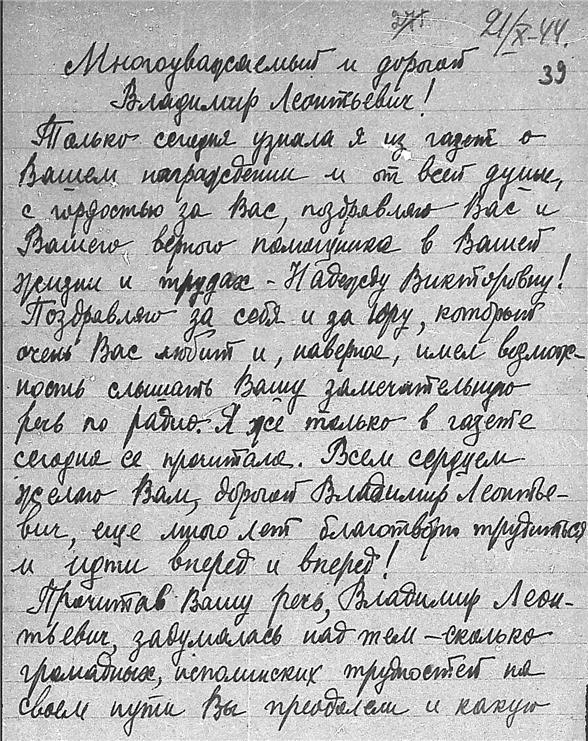 21/X-44.
39
Многоуважаемый и дорогой
Владимир Леонтьевич!
Только сегодня узнала я из газет о
Вашем награждении и от всей души,
с гордостью за Вас, поздравляю Вас и
Вашего верного помощника в Вашей
жизни и трудах - Надежду Викторовну!
Поздравляю за себя и за Юру, который
очень Вас любит и, наверное, имел возмож-
ность слышать Вашу замечательную
речь по радио. Я же только в газете
сегодня ее прочитала. Всем сердцем
желаю Вам, дорогой Владимир Леонтье-
вич, еще много лет благотворно трудиться
и идти вперед и вперед!
Прочитав Вашу речь, Владимир Леон-
тьевич, задумалась над тем - сколько
громадных, исполинских трудностей на
своем пути Вы преодолели и какую